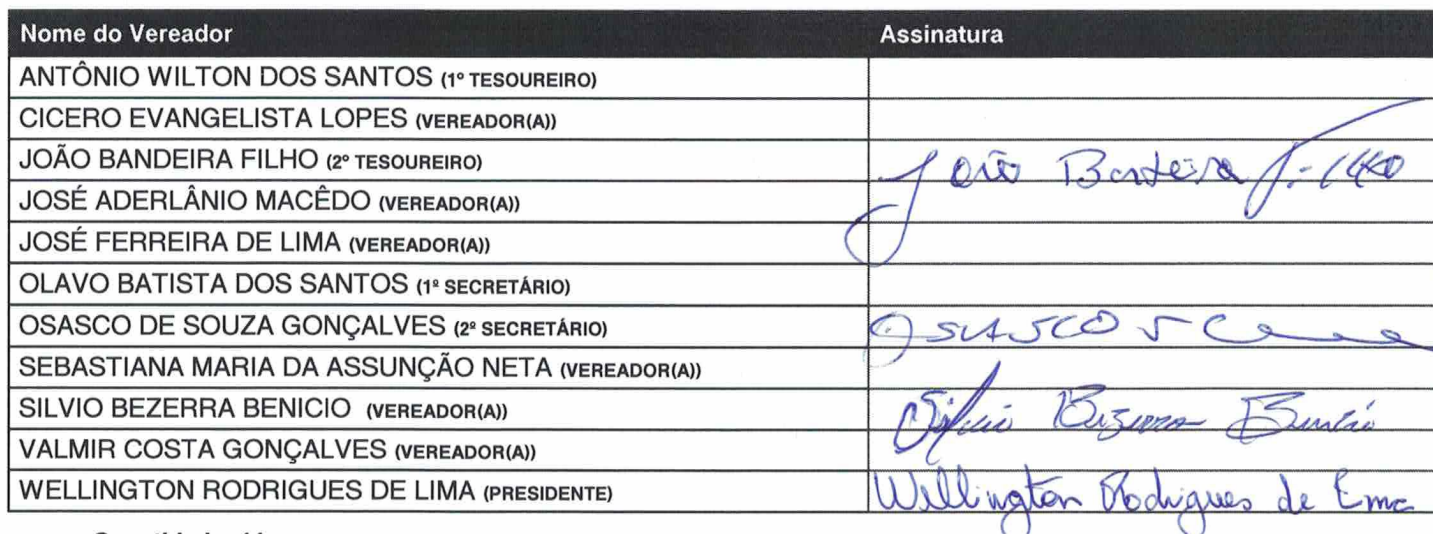 Nome do Vereador Assinatura
ANTÔNIO WILTON DOS SANTOS (1º TESOUREIRO)
CICERO EVANGELISTA LOPES (VEREADOR(A))
JOÃO BANDEIRA FILHO (2º TESOUREIRO) João Bandeira Filho
JOSÉ ADERLÂNIO MACÊDO (VEREADOR(A))
JOSÉ FERREIRA DE LIMA (VEREADOR(A))
OLAVO BATISTA DOS SANTOS (1º SECRETÁRIO)
OSASCO DE SOUZA GONÇALVES (2º SECRETÁRIO) OSASCO
SEBASTIANA MARIA DA ASSUNÇÃO NETA (VEREADOR(A))
SILVIO BEZERRA BENICIO (VEREADOR(A)) Silvio Bezerra Benicio
VALMIR COSTA GONÇALVES (VEREADOR(A))
WELLINGTON RODRIGUES DE LIMA (PRESIDENTE) Wellington Rodrigues de Lima